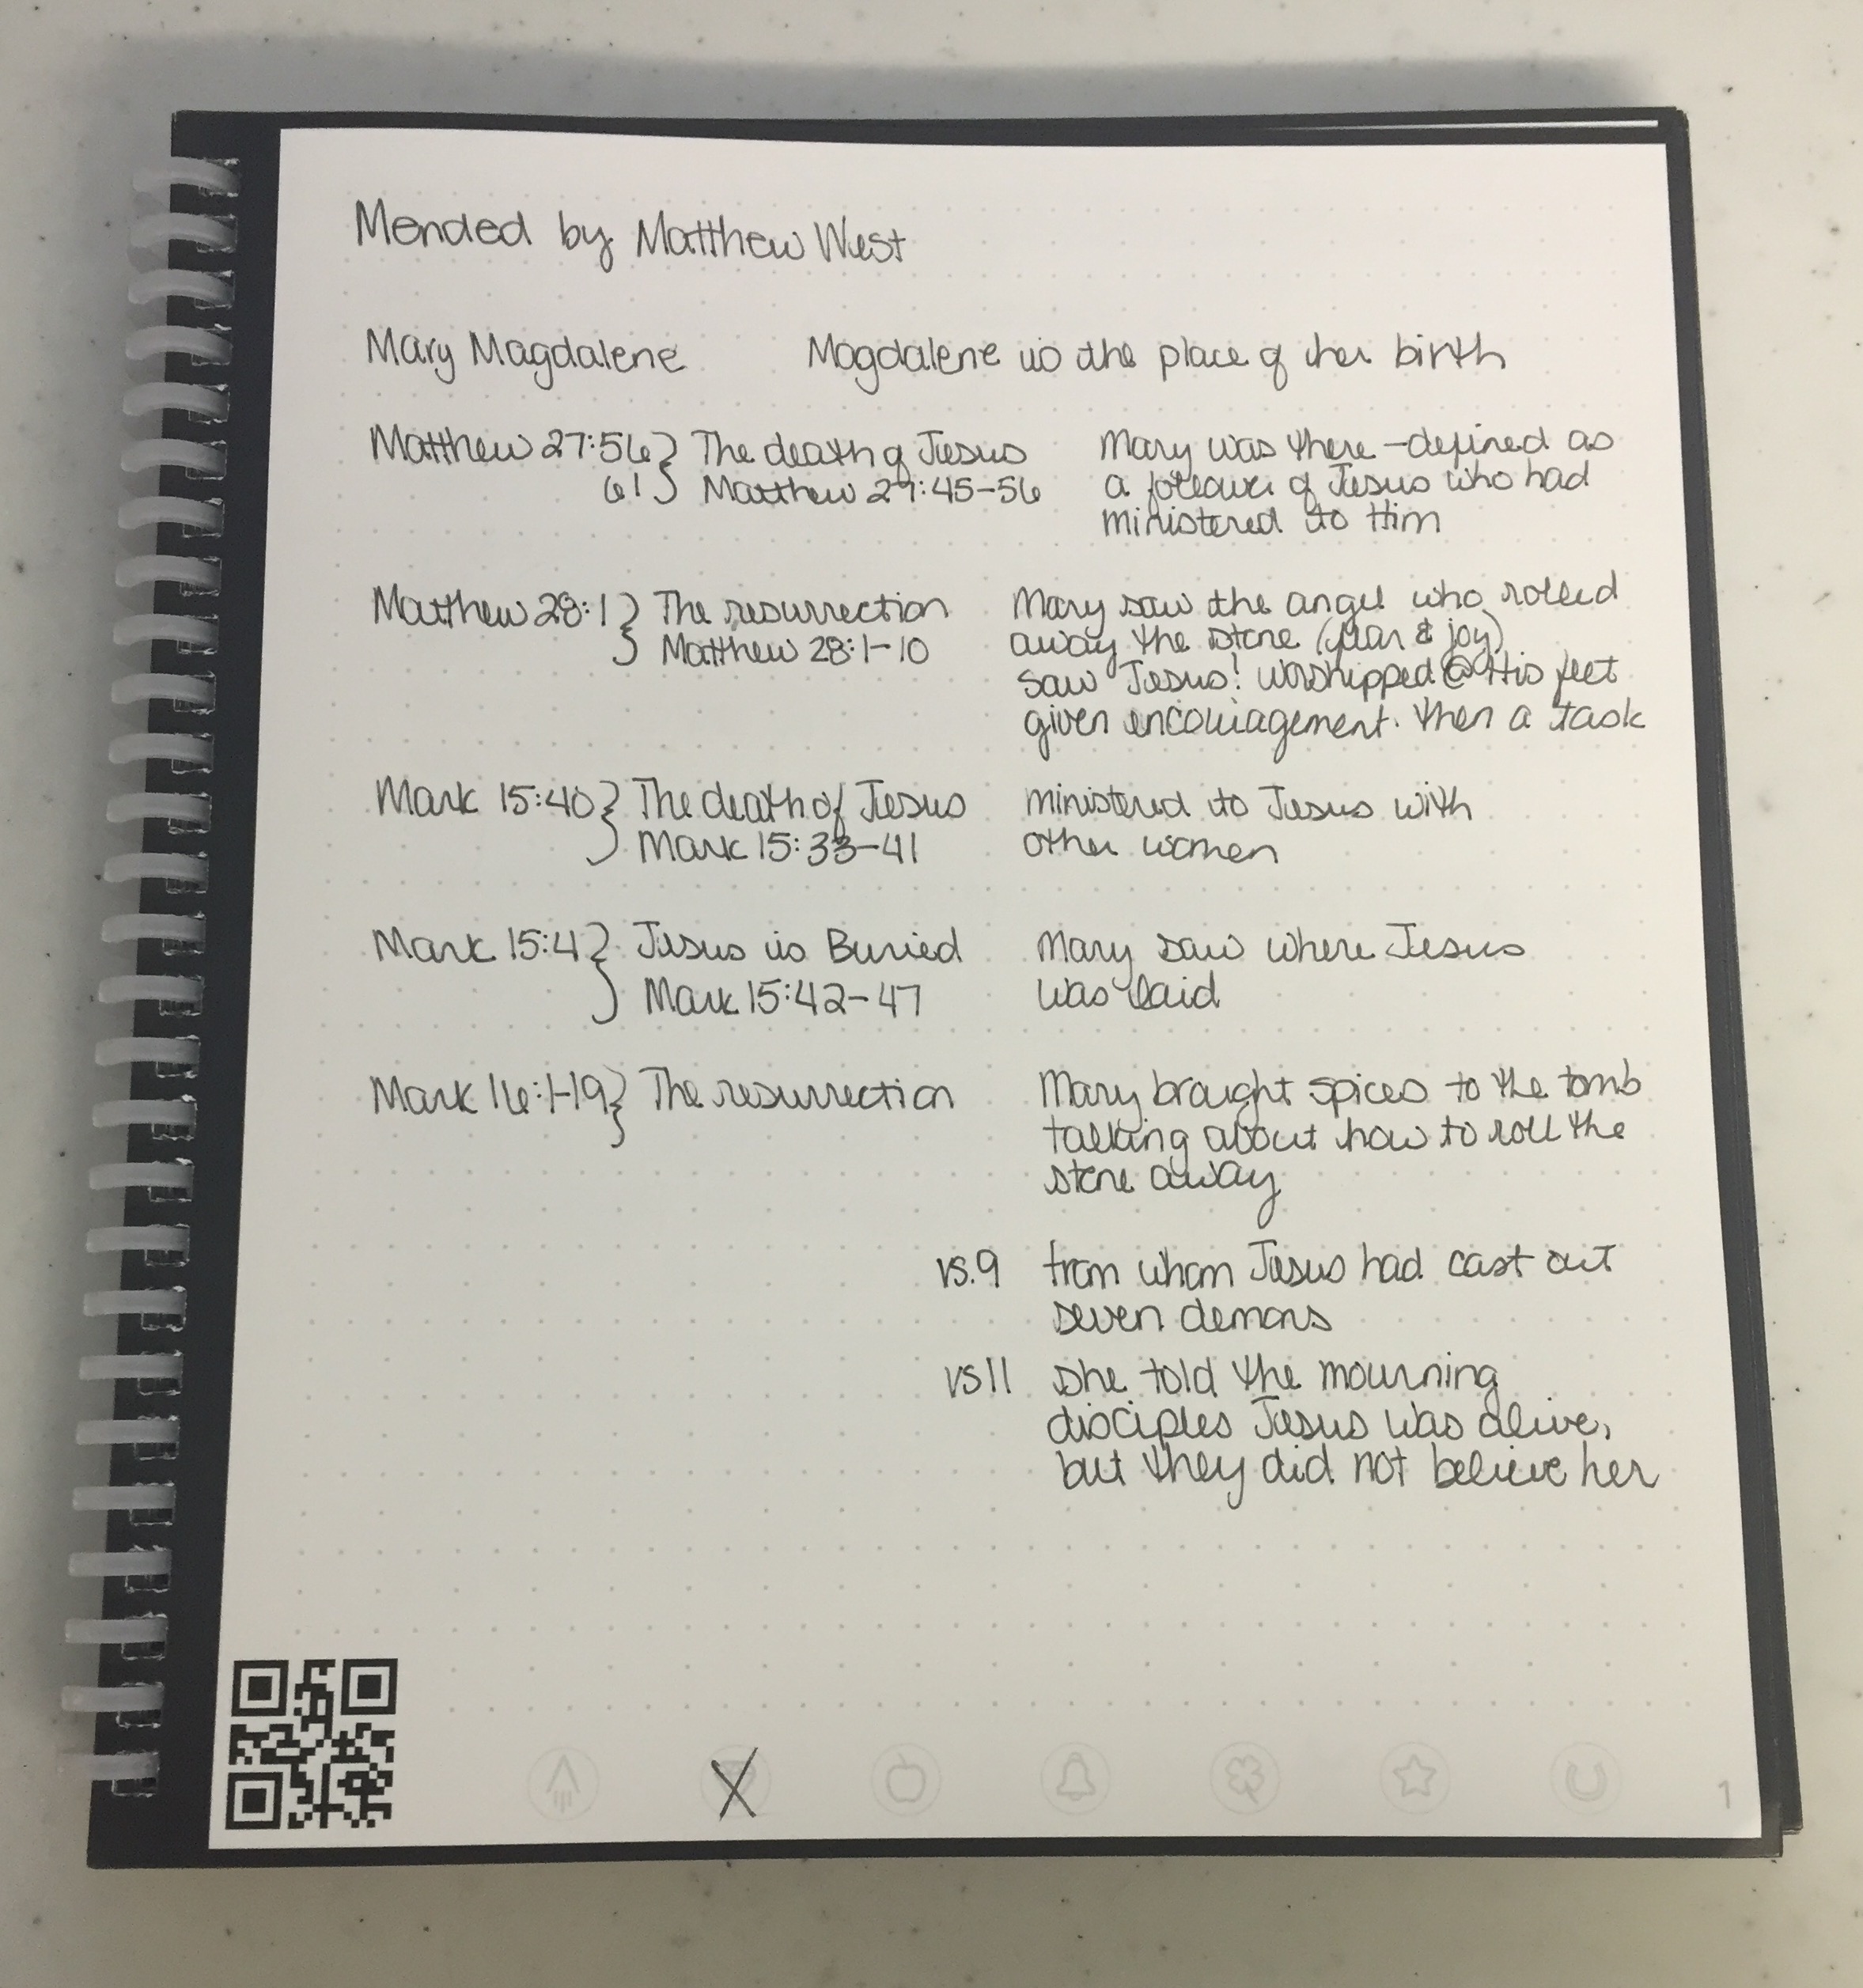 Mended by Matthew West
Mary Magdalene Magdalene is the place of her birth
Matthew 27:56 } The death of Jesus Mary was there - defined as
61 } Matthew 27:45-56 a follower of Jesus who had
ministered to Him
Matthew 28:1 } The resurrection Mary saw the angel who rolled
Matthew 28:1-10 away the stone (fear & joy)
saw Jesus! worshipped @ His feet
given encouragement. Then a task
Mark 15:40 } The death of Jesus ministered to Jesus with
Mark 15:33-41 other women
Mark 15:4 } Jesus is Buried Mary saw where Jesus
Mark 15:42-47 was laid
Mark 16:1-19 } The resurrection Mary brought spices to the tomb
talking about how to roll the
stone away
vs.9 from whom Jesus had cast out
seven demons
vs 11 she told the mourning
disciples Jesus was alive,
but they did not believe her
X
1